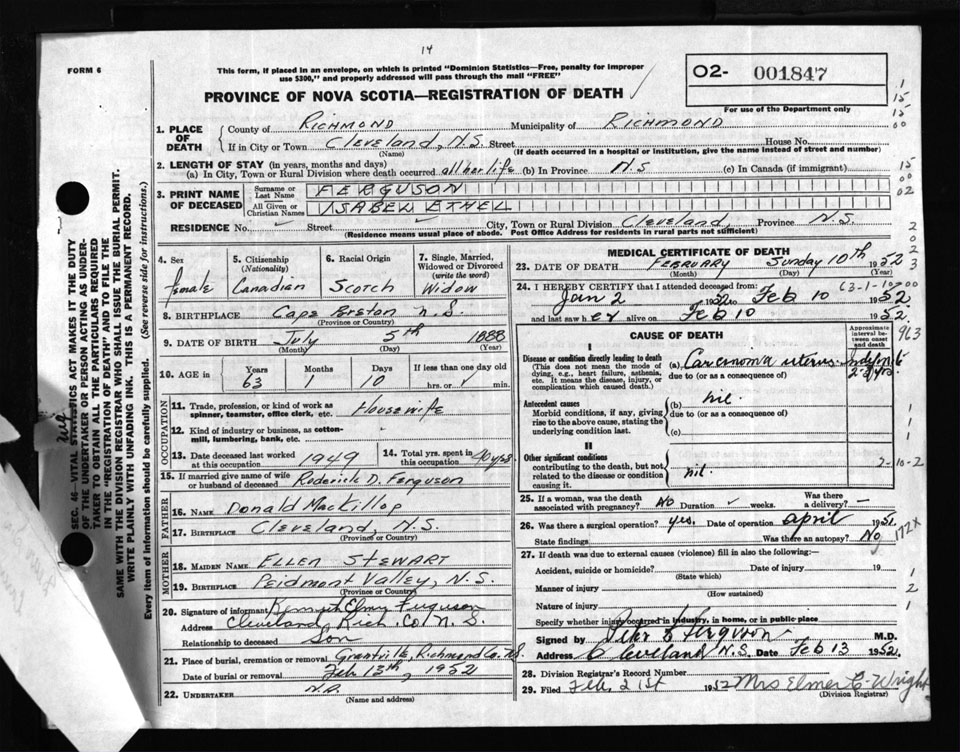 14
FORM 6
This form, if placed in an envelope, on which is printed "Dominion Statistics—Free, penalty for improper
use $300," and properly addressed will pass through the mail "FREE"
O2- 001847
PROVINCE OF NOVA SCOTIA—REGISTRATION OF DEATH
For use of the Department only
1. PLACE OF DEATH County of RICHMOND Municipality of RICHMOND
If in City or Town Cleveland, N.S. Street House No.
(Name) (If death occurred in a hospital or institution, give the name instead of street and number)
2. LENGTH OF STAY (in years, months and days)
(a) In City, Town or Rural Division where death occurred all her life (b) In Province N.S (c) In Canada (if immigrant)
3. PRINT NAME OF DECEASED Surname or Last Name FERGUSON
All Given or Christian Names ISABEL ETHEL
RESIDENCE No. Street City, Town or Rural Division Cleveland, Province N.S.
(Residence means usual place of abode. Post Office Address for residents in rural parts not sufficient)
4. Sex female
5. Citizenship (Nationality) Canadian
6. Racial Origin Scotch
7. Single, Married, Widowed or Divorced (write the word) Widow
8. BIRTHPLACE Cape Breton N.S.
(Province or Country)
9. DATE OF BIRTH July 5th 1888
(Month) (Day) (Year)
10. AGE in Years 63 Months 1 Days 10 If less than one day old hrs. or min.
OCCUPATION
11. Trade, profession, or kind of work as spinner, teamster, office clerk, etc. Housewife
12. Kind of industry or business, as cotton-mill, lumbering, bank, etc.
13. Date deceased last worked at this occupation 1949
14. Total yrs. spent in this occupation 40 yrs.
15. If married give name of wife or husband of deceased Roderick D. Ferguson
FATHER
16. Name Donald MacKillop
17. BIRTHPLACE Cleveland, N.S.
(Province or Country)
MOTHER
18. MAIDEN NAME ELLEN STEWART
19. BIRTHPLACE Peidmont Valley, N.S.
(Province or Country)
20. Signature of informant Kenneth Elmer Ferguson
Address Cleveland Rich. Co. N.S.
Relationship to deceased Son
21. Place of burial, cremation or removal Grantville, Richmond Co. N.S.
Date of burial or removal Feb. 13th, 1952
22. UNDERTAKER
(Name and address)
MEDICAL CERTIFICATE OF DEATH
23. DATE OF DEATH FEBRUARY Sunday 10th 1952
(Month) (Day) (Year)
24. I HEREBY CERTIFY that I attended deceased from:
Jan 2 1952 to Feb 10 1952.
and last saw her alive on Feb 10 1952.
CAUSE OF DEATH
Approximate interval between onset and death
I
Disease or condition directly leading to death
(This does not mean the mode of dying, e.g., heart failure, asthenia, etc. It means the disease, injury, or complication which caused death.)
(a) Carcinoma uterus
due to (or as a consequence of)
Antecedent causes
Morbid conditions, if any, giving rise to the above cause, stating the underlying condition last.
(b) nil.
due to (or as a consequence of)
(c)
II
Other significant conditions
contributing to the death, but not related to the disease or condition causing it.
nil.
25. If a woman, was the death associated with pregnancy? No Duration weeks. Was there a delivery? —
26. Was there surgical operation? yes. Date of operation April 1951
State findings Was there an autopsy? No
27. If death was due to external causes (violence) fill in also the following:—
Accident, suicide or homicide? Date of injury 19
(State which)
Manner of injury
(How sustained)
Nature of injury
Specify whether injury occurred in industry, in home, or in public place
Signed by Ferguson M.D.
Address Cleveland N.S. Date Feb 13 1952.
28. Division Registrar's Record Number
29. Filed Feb. 21st 1952 Mrs Elmer C. Wright
(Division Registrar)
SEC. 46—VITAL STATISTICS ACT MAKES IT THE DUTY
OF THE UNDERTAKER OR PERSON ACTING AS UNDER-
TAKER TO OBTAIN ALL THE PARTICULARS REQUIRED
IN THE "REGISTRATION OF DEATH" AND TO FILE THE
SAME WITH THE DIVISION REGISTRAR WHO SHALL ISSUE THE BURIAL PERMIT.
WRITE PLAINLY WITH UNFADING INK. THIS IS A PERMANENT RECORD.
Every item of information should be carefully supplied. (See reverse side for instructions.)
1
15
15
00
15
00
02
2
0
2
3
63-1-10
00
963
1
1
2-10-2
172X
1
2
1